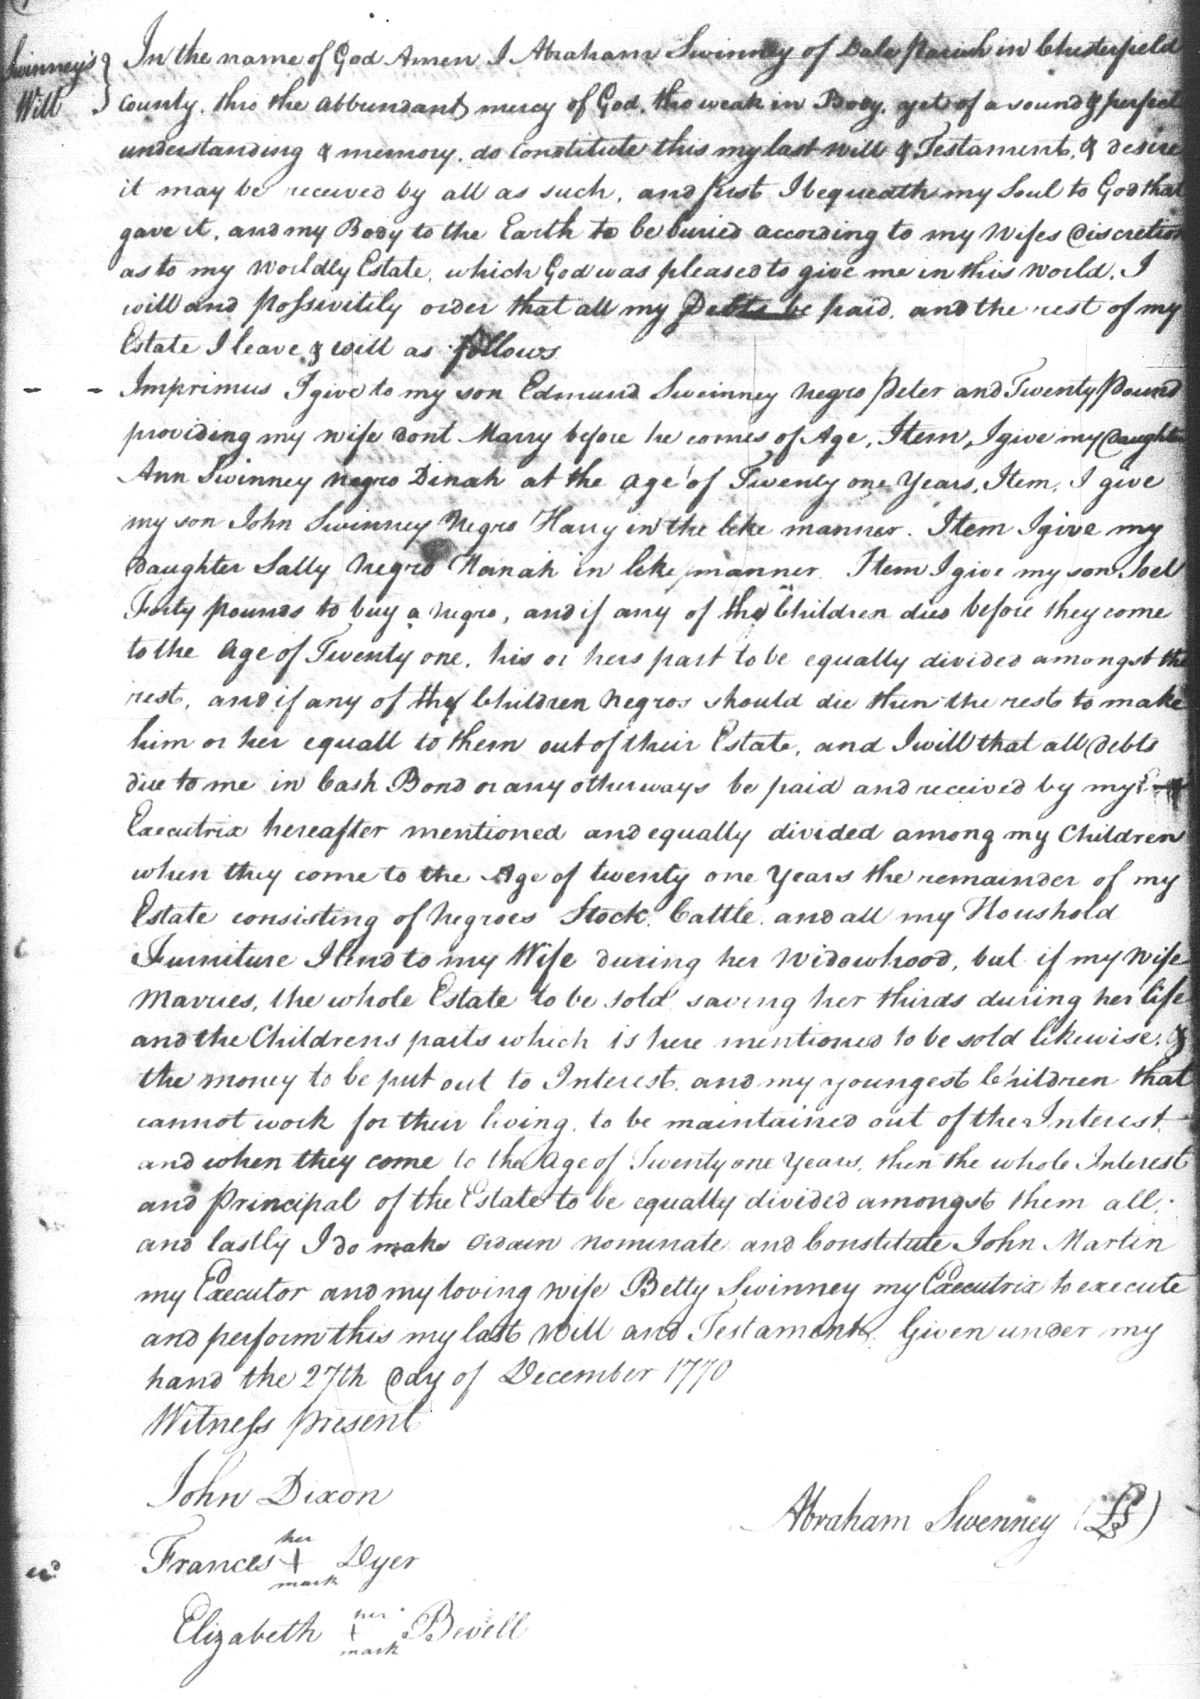 Swinney's Will } In the name of God Amen I Abraham Swinney of Dale Parish in Chesterfield
County, thro the abbundant mercy of God, tho weak in Body, yet of a sound & perfect
understanding & memory, do Constitute this my last will & Testament, & desire
it may be received by all as such, and first I bequeath my Soul to God that
gave it, and my Body to the Earth to be buried according to my Wifes Discretion
as to my Worldly Estate, which God was pleased to give me in this World, I
will and Possivitily order that all my Debts be paid, and the rest of my
Estate I leave & will as follows
Imprimus I give to my son Edmund Sweinney Negro Peter and Twenty Pound
providing my wife dont Marry before he comes of Age, Item, I give my Daughter
Ann Swinney negro Dinah at the age of Twenty one Years, Item, I give
my son John Swinney Negro Harry in the like manner. Item I give my
Daughter Sally Negro Hannah in like manner. Item I give my son Joel
Forty pounds to buy a negro, and if any of the Children died before they come
to the Age of Twenty one, his or hers part to be equally divided amongst the
rest, and if any of the Children Negros should die then the rest to make
him or her equall to them out of their Estate, and I will that all debts
due to me in Cash Bond or any otherways be paid and received by my
Executrix hereafter mentioned and equally divided among my Children
when they come to the Age of twenty one Years the remainder of my
Estate consisting of Negroes Stock, Cattle, and all my Houshold
Furniture I lend to my Wife during her Widowhood, but if my Wife
Marries, the whole Estate to be sold saving her thirds during her life
and the Childrens parts which is here mentioned to be sold likewise, &
the money to be put out to Interest, and my youngest Children that
cannot work for their living, to be maintained out of the Interest,
and when they come to the Age of Twenty one Years, then the whole Interest
and Principal of the Estate to be equally divided amongst them all,
and lastly I do make ordain nominate and Constitute John Martin
my Executor and my loving wife Betty Swinney my Executrix to execute
and perform this my last Will and Testament. Given under my
hand the 27th Day of December 1770
Witness present
John Dixon
Abraham Swenney (LS)
her
Frances + Dyer
mark
her
Elizabeth + Bevell
mark